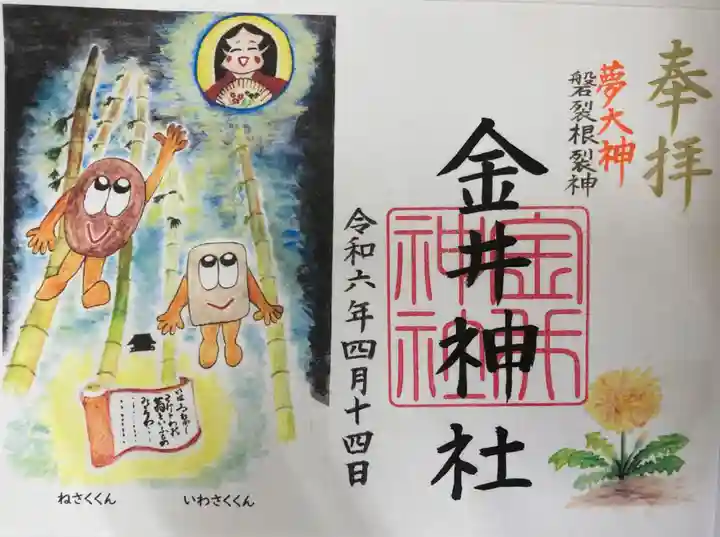 奉拝
夢大神
磐裂根裂神
金井神社
金井神社
令和六年四月十四日
ねさくくん
いわさくくん